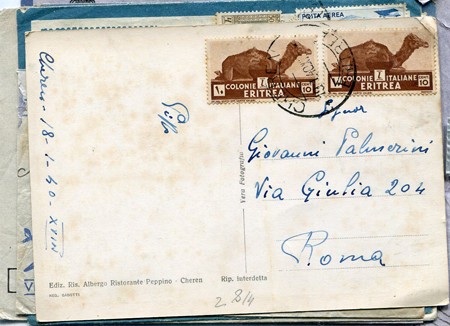 POSTA AEREA
COLONIE ITALIANE
ERITREA
10
COLONIE ITALIANE
ERITREA
10
Cheren - 18-1-40-XVIII
Signor
Giovanni Palmerini
Via Giulia 204
Roma
Vera Fotografia
Ediz. Ris. Albergo Ristorante Peppino - Cheren
Rip. interdetta
2 8/4